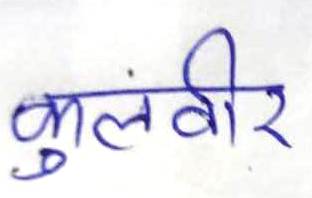 कुलंवीर